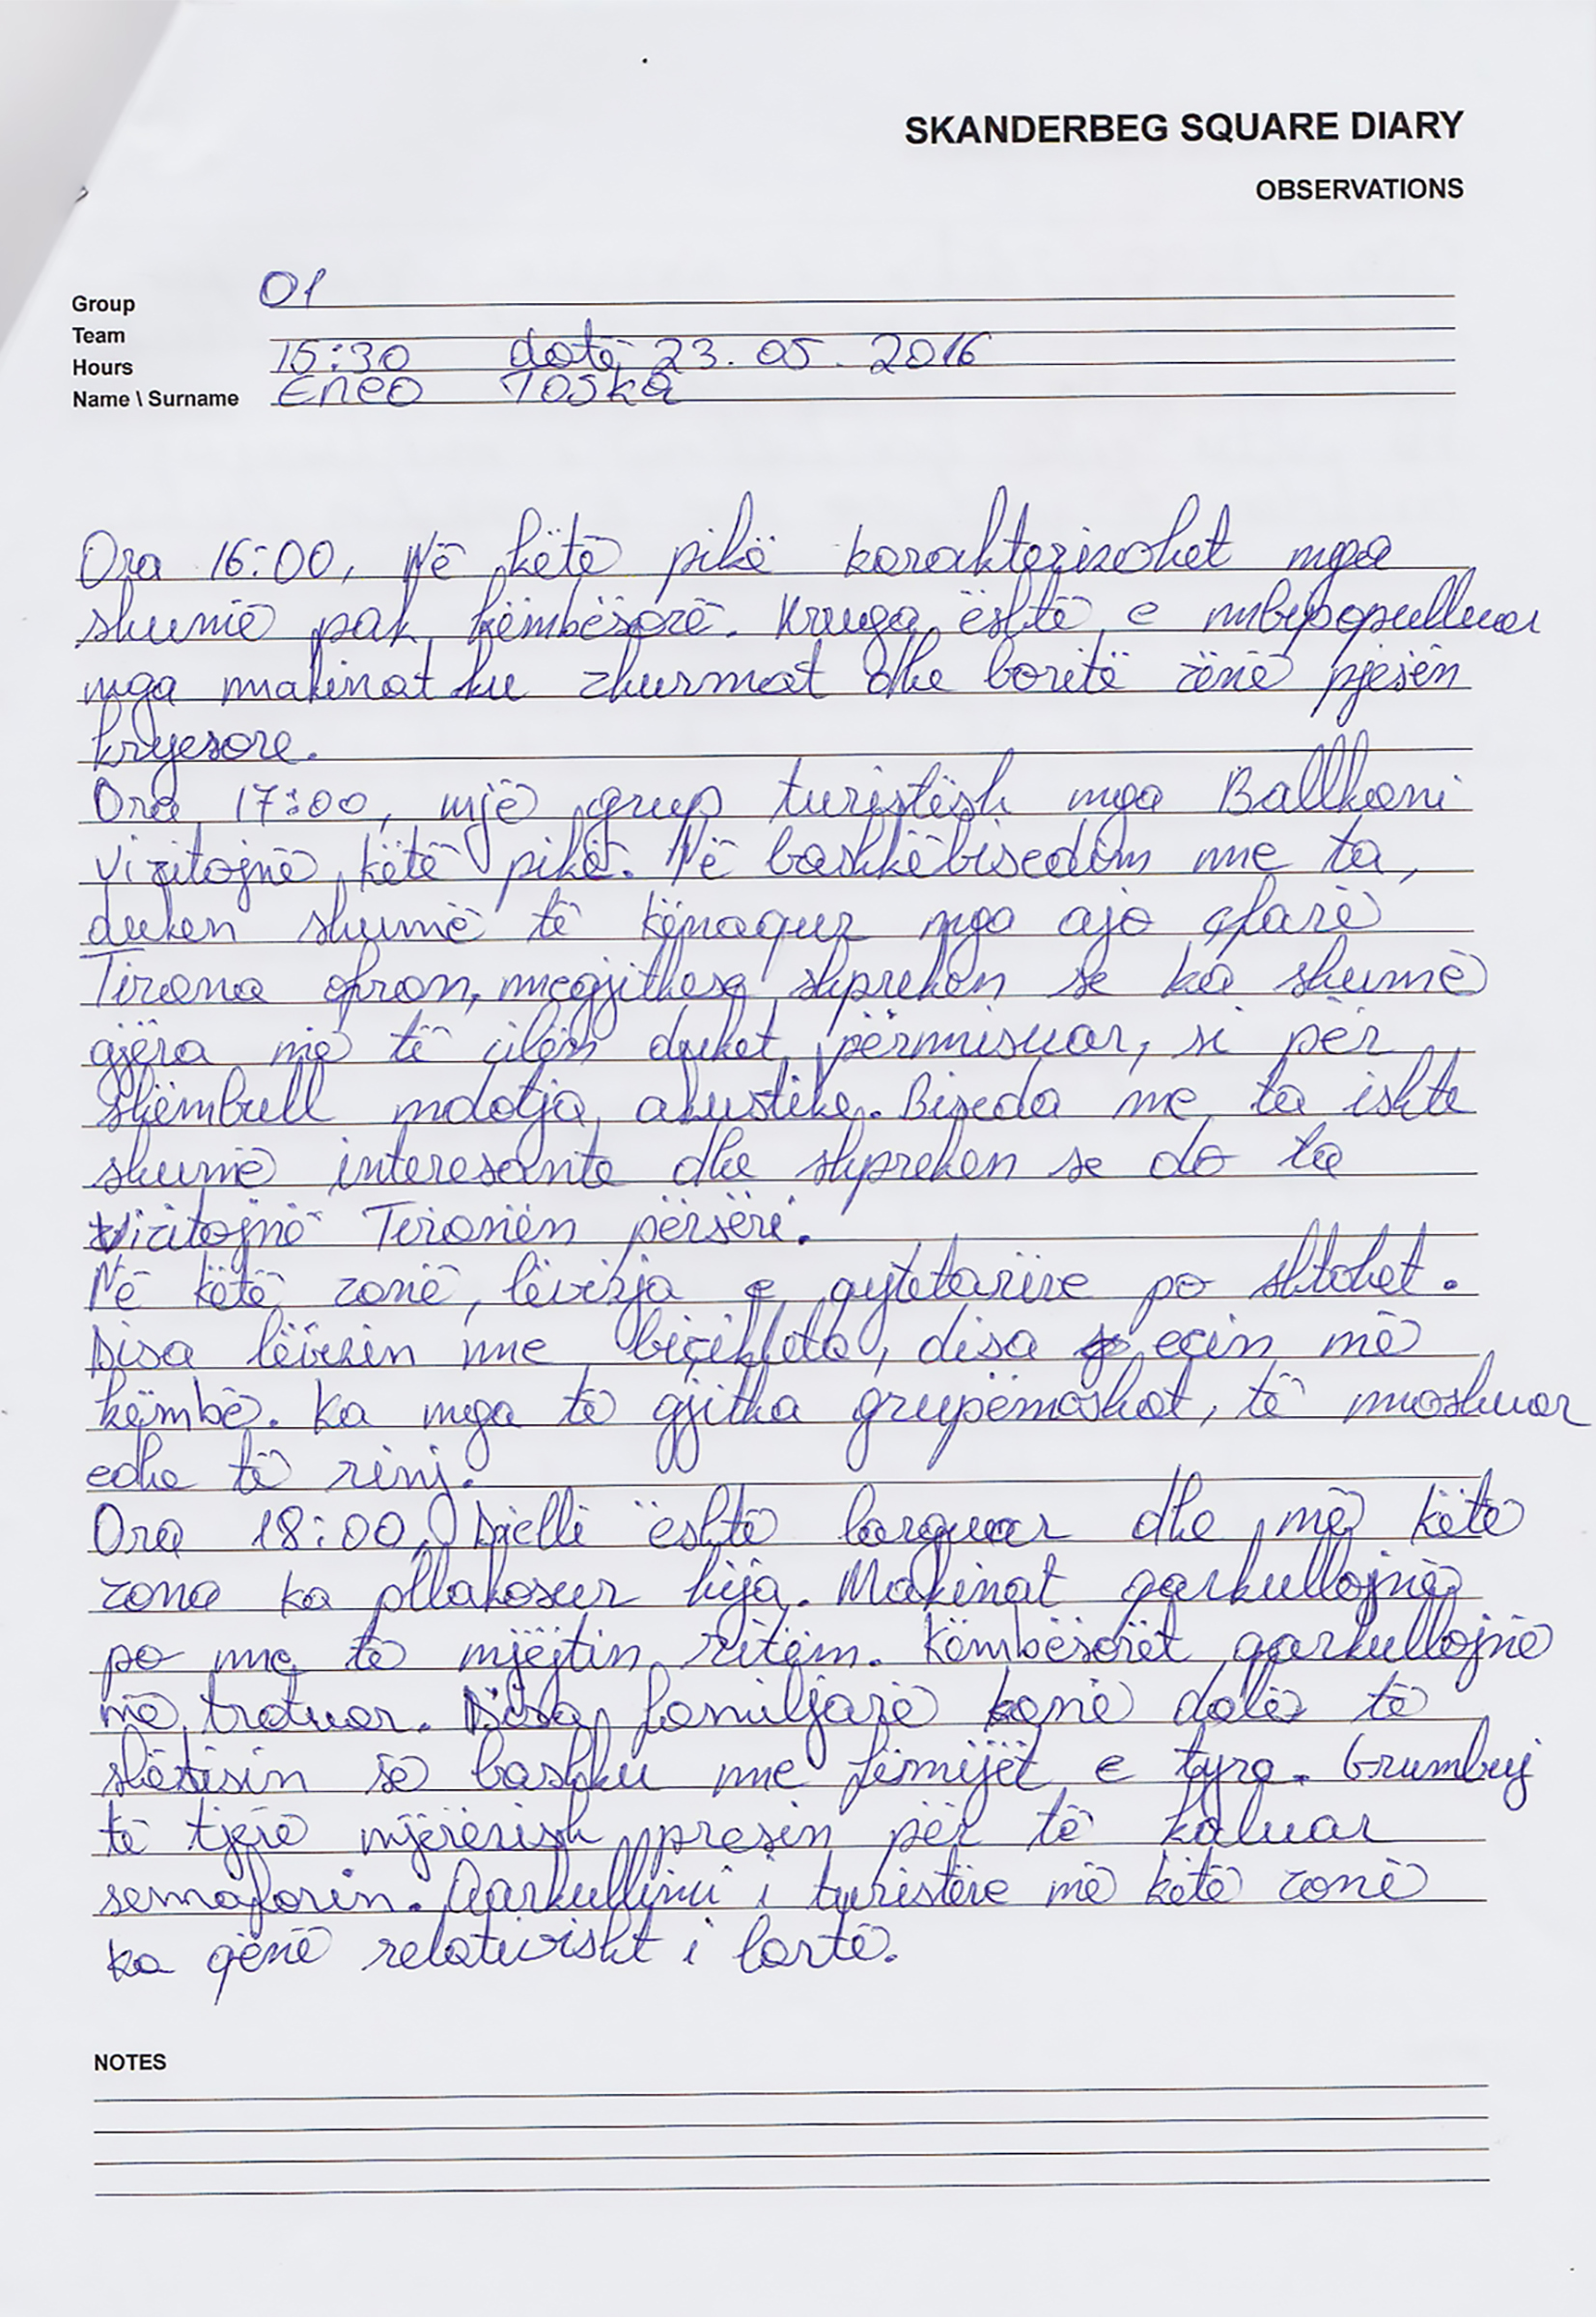 SKANDERBEG SQUARE DIARY
OBSERVATIONS
Group 01
Team
Hours 15:30 datë 23.05.2016
Name \ Surname Eneo Toska
Ora 16:00, Në këtë pikë karakterizohet nga
shumë pak këmbësorë. Rruga është e mbipopulluar
nga makinat ku zhurmat dhe boritë zënë pjesën
kryesore.
Ora 17:00, një grup turistësh nga Ballkani
vizitojnë këtë pikë. Në bashkëbisedim me ta,
duken shumë të kënaqur nga ajo çfarë
Tirana ofron, megjithese shprehen se ka shumë
gjëra në të cilën duhet përmisuar, si për
shëmbull ndotja akustike. Biseda me ta ishte
shumë interesante dhe shprehen se do ta
vizitojnë Tiranën përsëri.
Në këtë zonë, lëvizja e qytetarëve po shtohet.
Disa lëvizin me biçikleta, disa ecin në
këmbë. Ka nga të gjitha grupëmoshat, të moshuar
edhe të rinj.
Ora 18:00, Dielli është larguar dhe në këtë
zona ka pllakosur hija. Makinat qarkullojnë
po me të njëjtin ritëm. Këmbësorët qarkullojnë
në trotuar. Disa familjarë kanë dalë të
shëtisin së bashku me fëmijët e tyre. Grumbuj
të tjerë njërëzish presin për të kaluar
semaforin. Qarkullimi i turistëve në këtë zonë
ka qënë relativisht i lartë.
NOTES